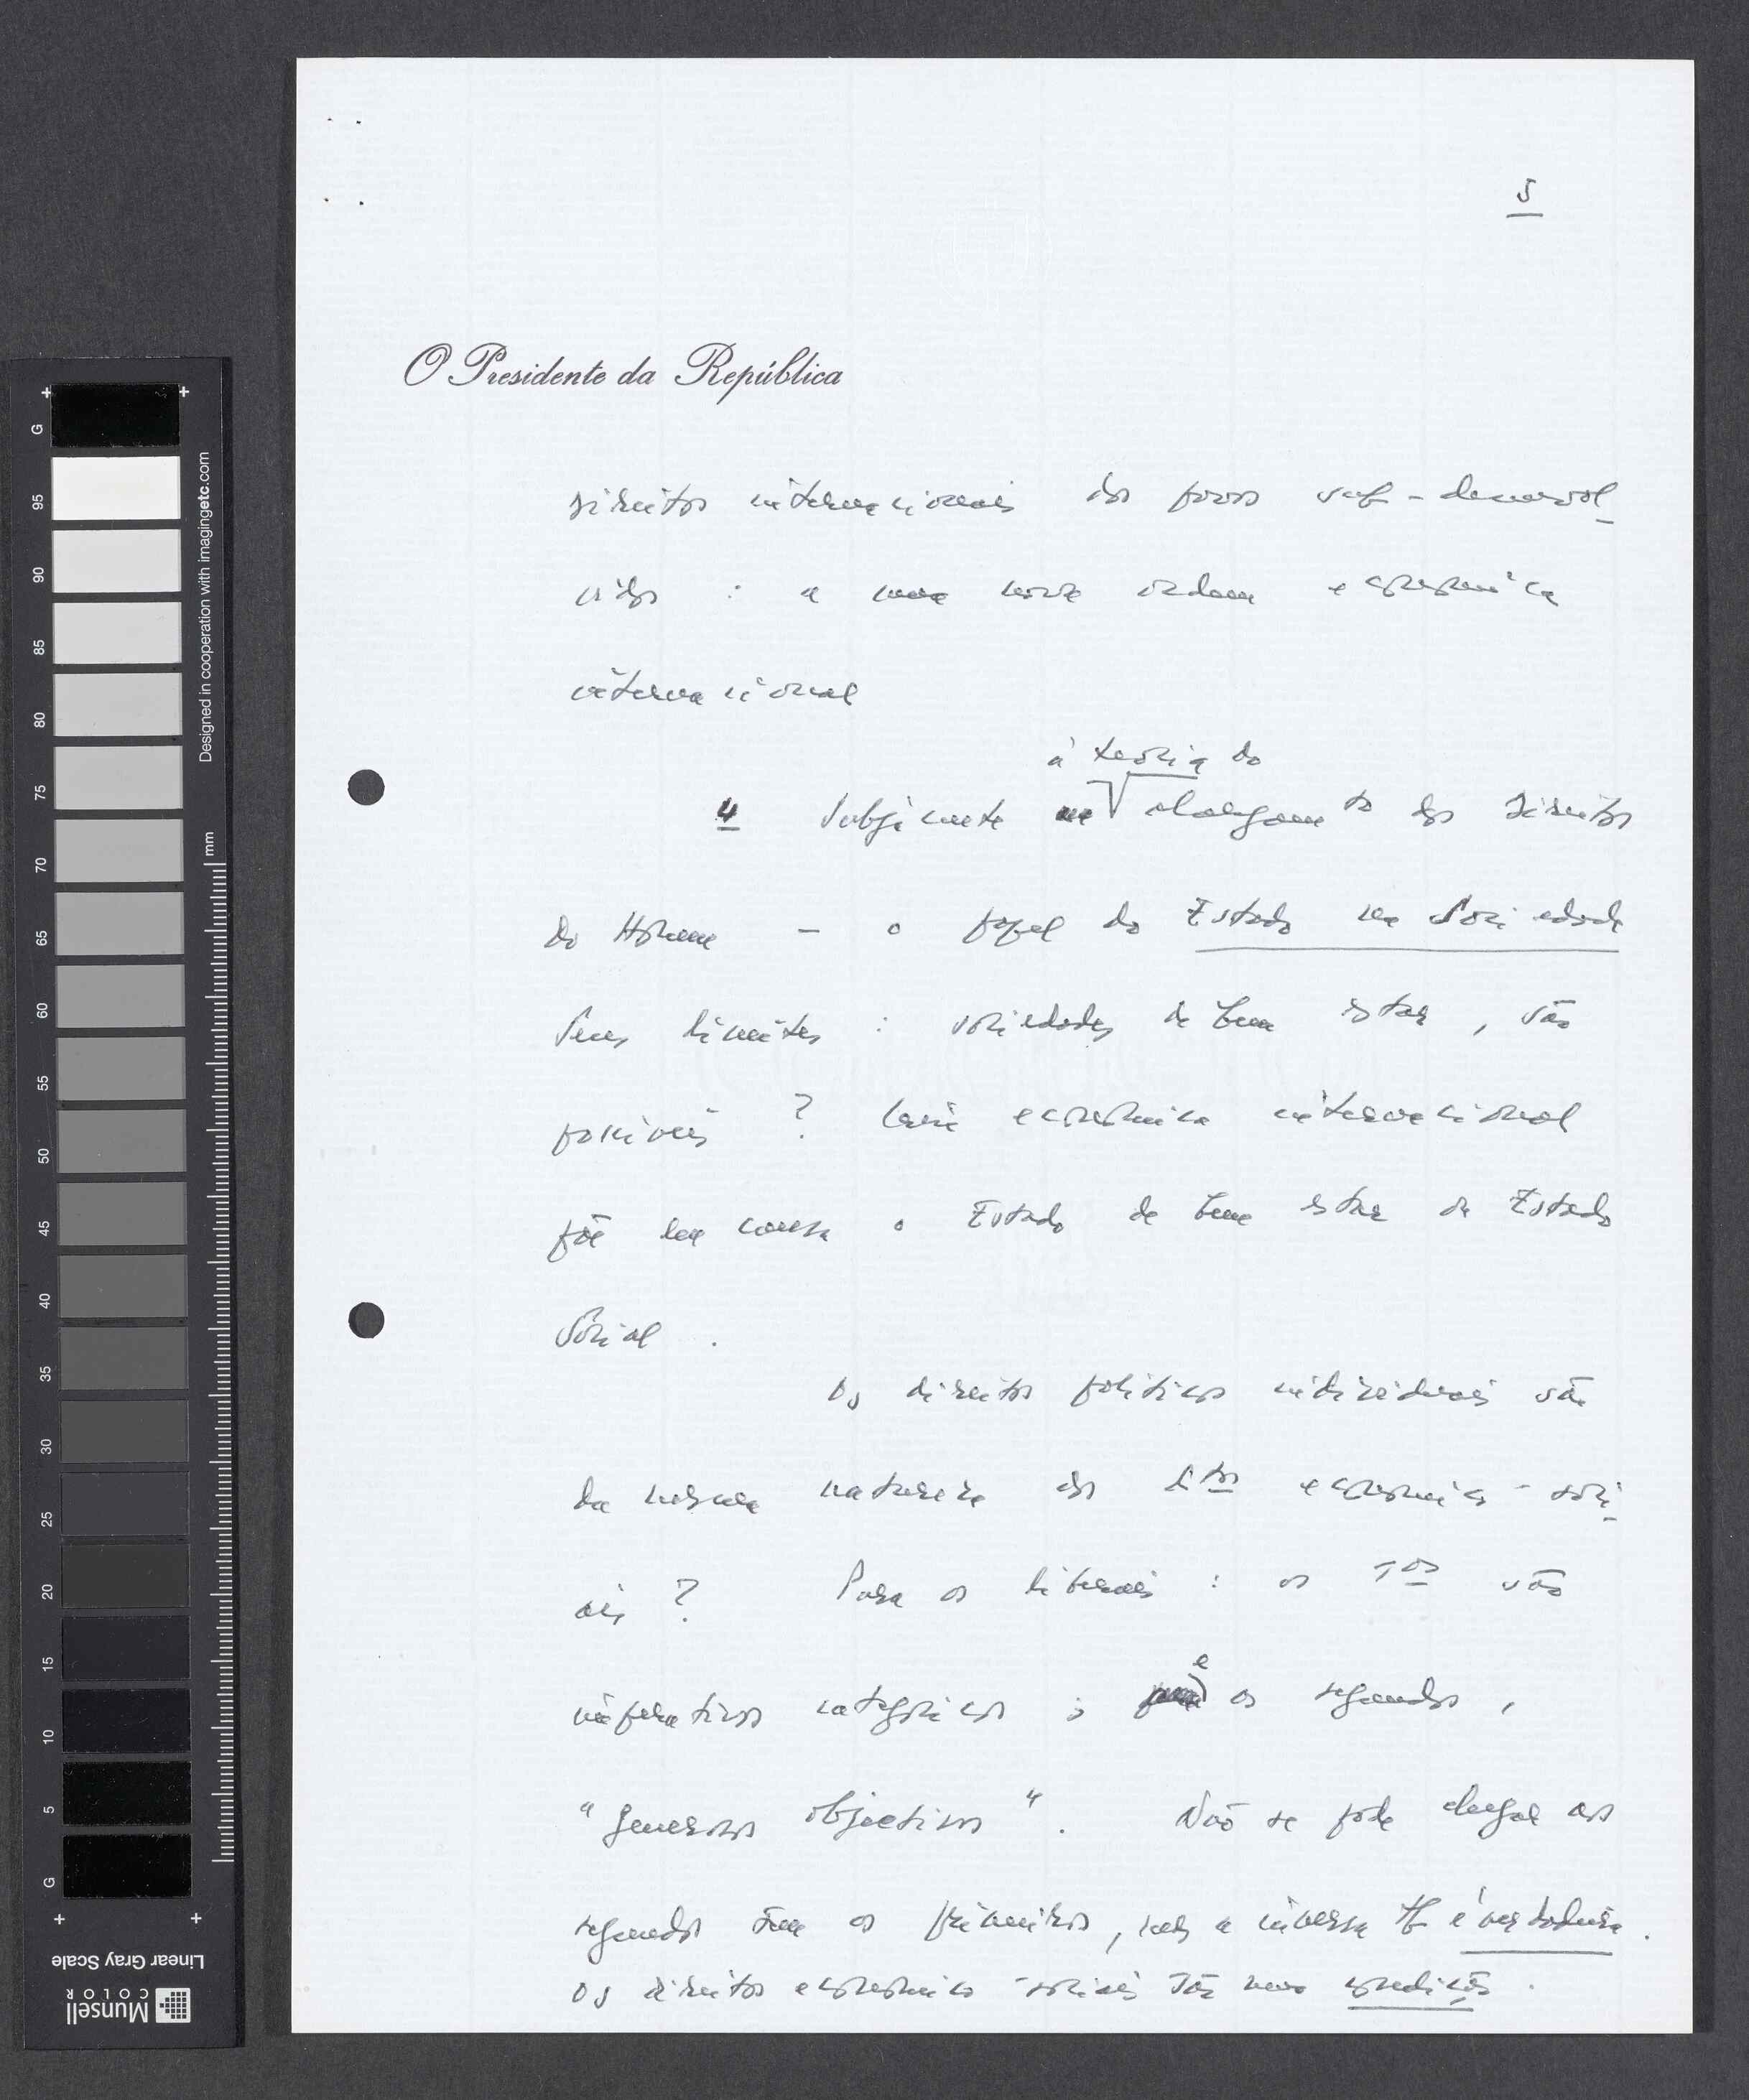 5
O Presidente da República
direitos internacionais dos povos sub-desenvol-
vidos : a uma nova ordem económica
internacional
à teoria do
4 Subjacente alargamto dos Direitos
do Homem - o papel do Estado na Sociedade
Seus limites : sociedades de bem estar, são
possíveis ? Crise económica internacional
põe em causa o Estado de bem estar ou Estado
Social .
Os direitos políticos individuais são
da mesma natureza dos dtos económico-soci-
ais ? Para os liberais : os 1os são
imperativos categóricos ; e os segundos,
"generosos objectivos". Não se pode chegar aos
segundos sem os primeiros, mas a inversa tb é verdadeira.
Os direitos económico-sociais são uma condição .
G
95
90
85
80
75
70
65
60
55
50
45
40
35
30
25
20
15
10
5
G
mm
Designed in cooperation with imagingetc.com
Linear Gray Scale
Munsell
COLOR